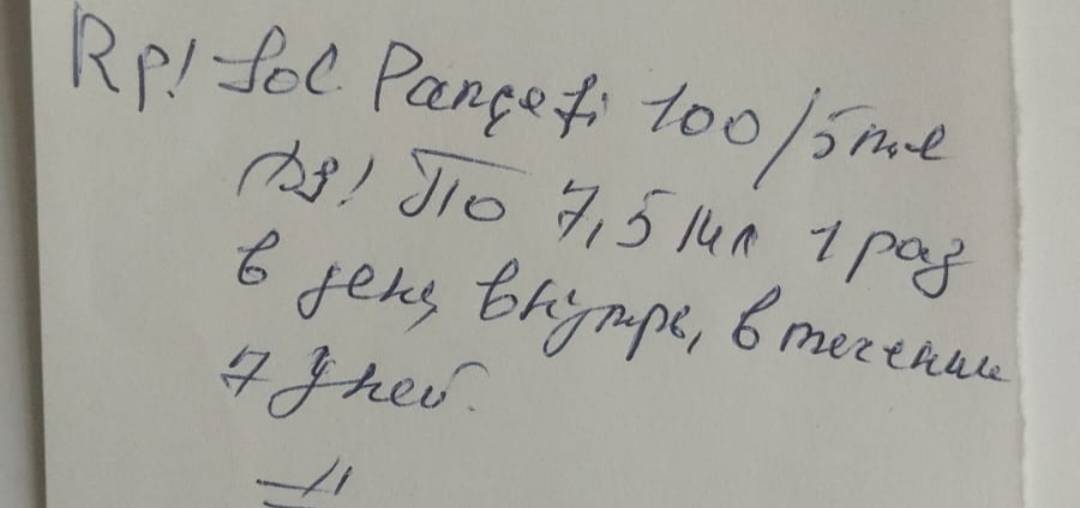 Rp! Sol. Pancefi 100/5мл
DS! По 7,5 мл 1 раз
в день, внутрь, в течении
7 дней.